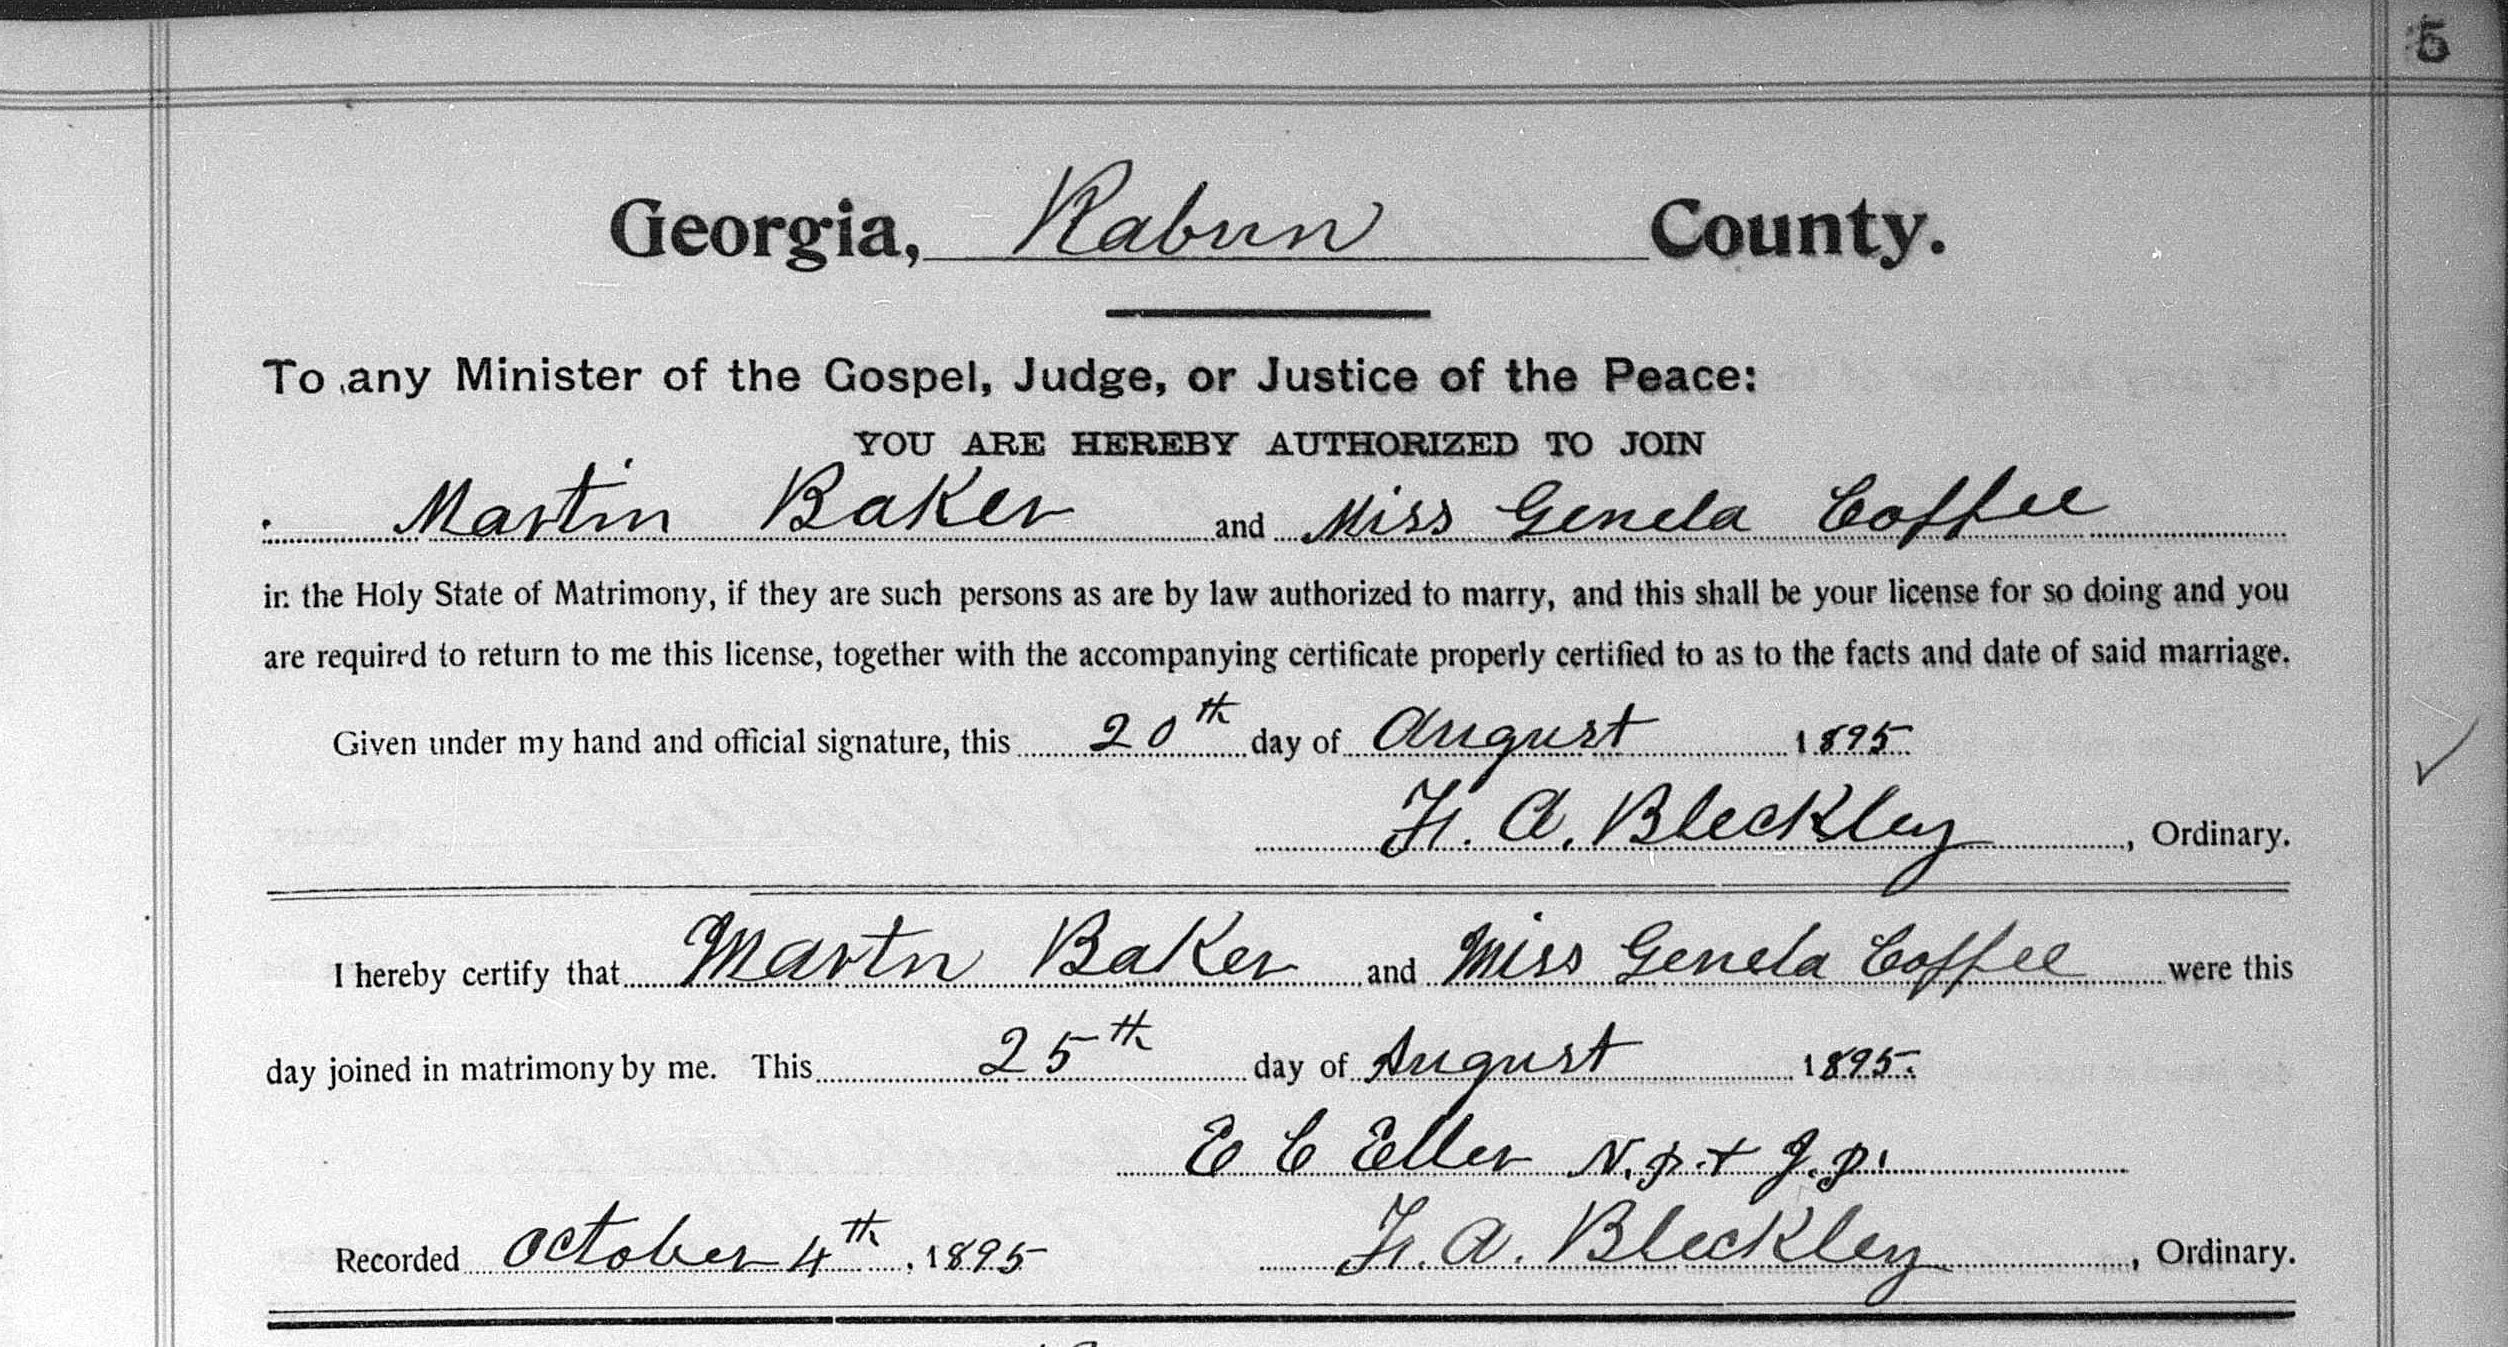 5
Georgia, Rabun County.
To any Minister of the Gospel, Judge, or Justice of the Peace:
YOU ARE HEREBY AUTHORIZED TO JOIN
Martin Baker and Miss Genela Coffee
in the Holy State of Matrimony, if they are such persons as are by law authorized to marry, and this shall be your license for so doing and you
are required to return to me this license, together with the accompanying certificate properly certified to as to the facts and date of said marriage.
Given under my hand and official signature, this 20th day of August 1895
F. A. Bleckley, Ordinary.
I hereby certify that Martn Baker and Miss Genela Coffee were this
day joined in matrimony by me. This 25th day of August 1895.
E C Eller N.P. + J.P.
Recorded October 4th, 1895 F. A. Bleckley, Ordinary.